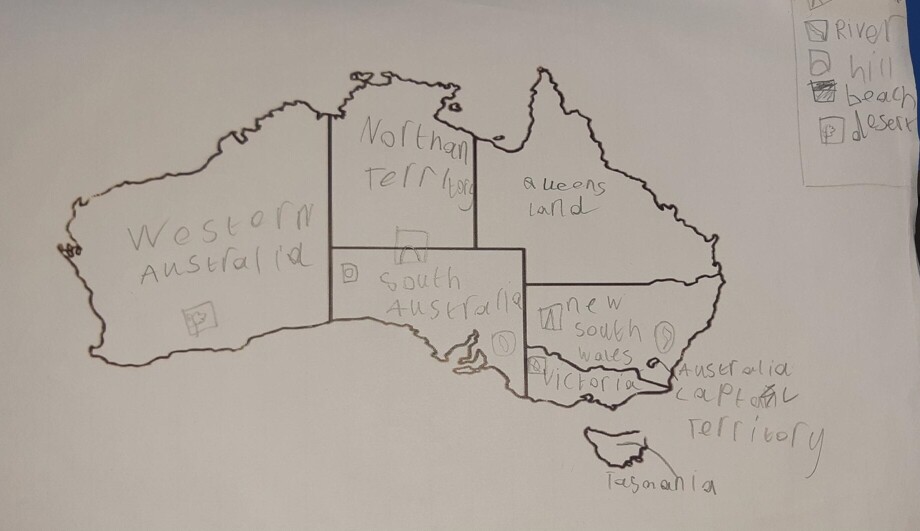 River
hill
beach
desert
Northan
Territory
Queens
land
Western
Australia
South
Australia
new
south
wales
Victoria
Australia
captal
Territory
Tasmania